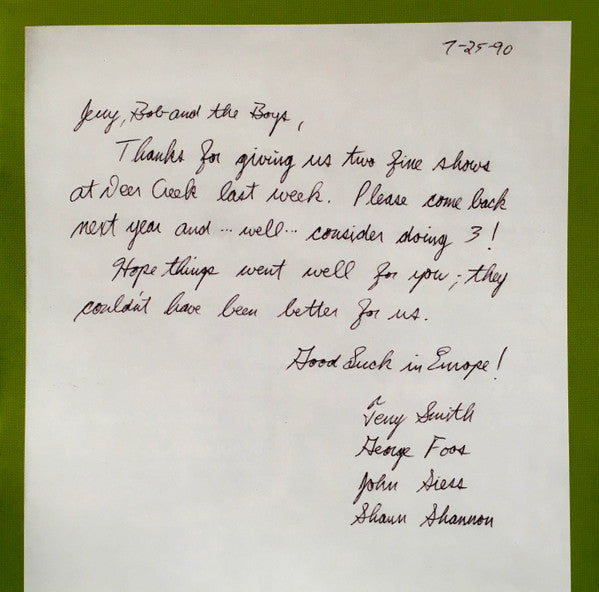 7-25-90
Jerry, Bob and the Boys,
Thanks for giving us two fine shows
at Deer Creek last week. Please come back
next year and ... well ... consider doing 3!
Hope things went well for you; they
couldn't have been better for us.
Good Luck in Europe!
Terry Smith
George Foos
John Siess
Shaun Shannon